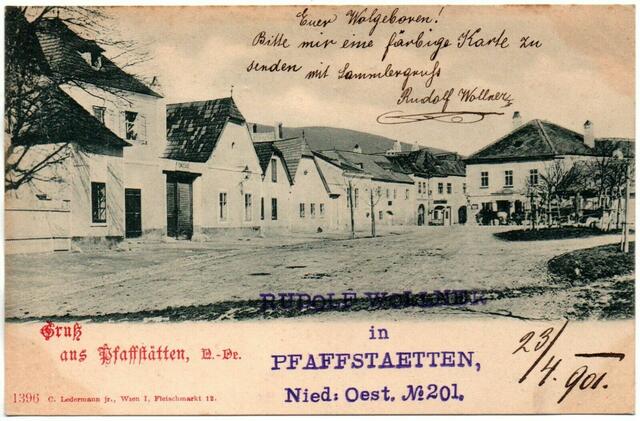 Euer Wolgeboren!
Bitte mir eine färbige Karte zu
senden mit Sammlergruß
Rudolf Wollner
RUDOLF WOLLNER
in
PFAFFSTAETTEN,
Nied: Oest. No 201.
Gruß
aus Pfaffstätten, N.-Oe.
23/4. 901.
1396 C. Ledermann jr., Wien I, Fleischmarkt 12.